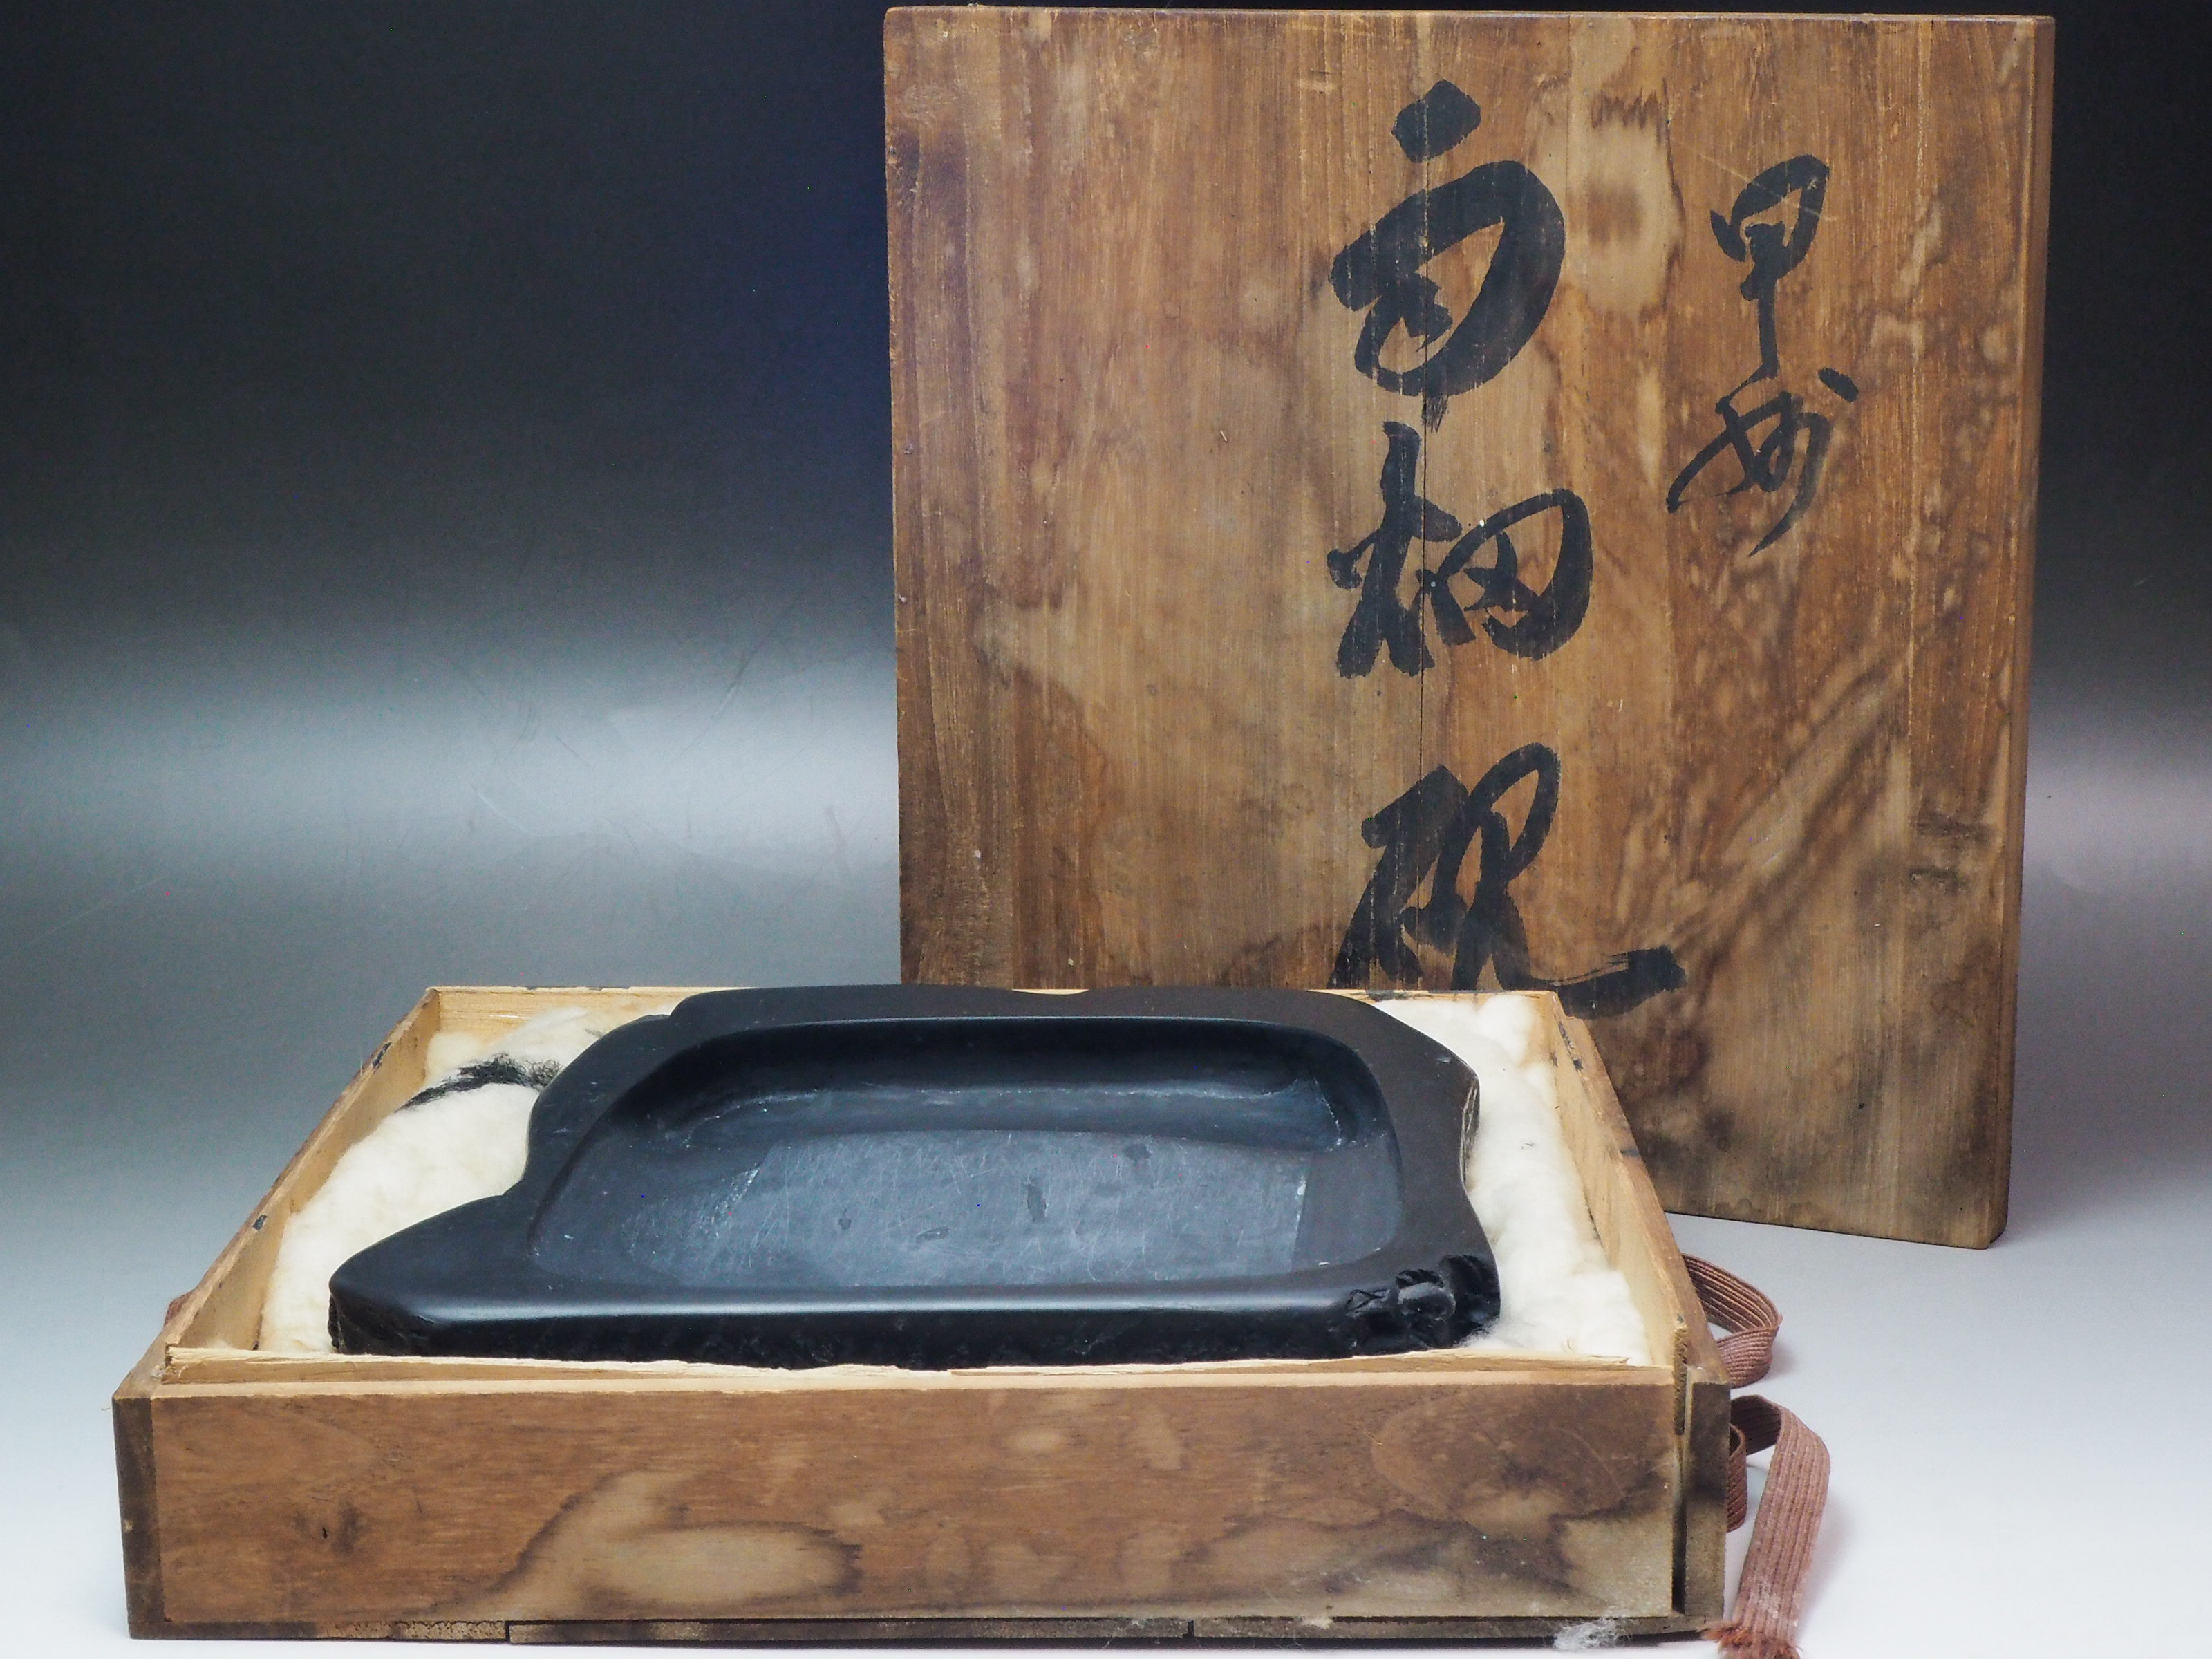 甲州
雨畑硯